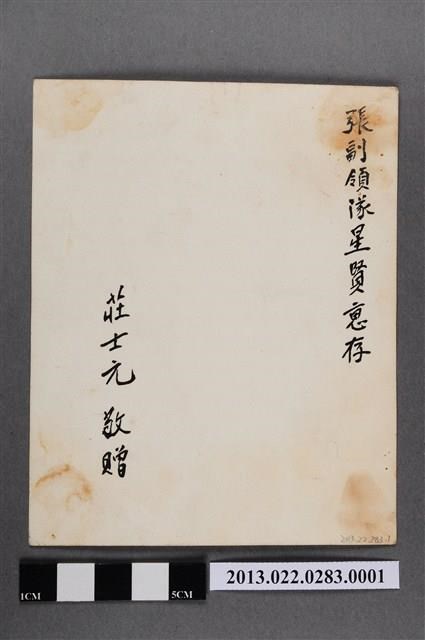 張副領隊星賢惠存
莊士元 敬贈
2013.22.283.1
1CM
5CM
2013.022.0283.0001